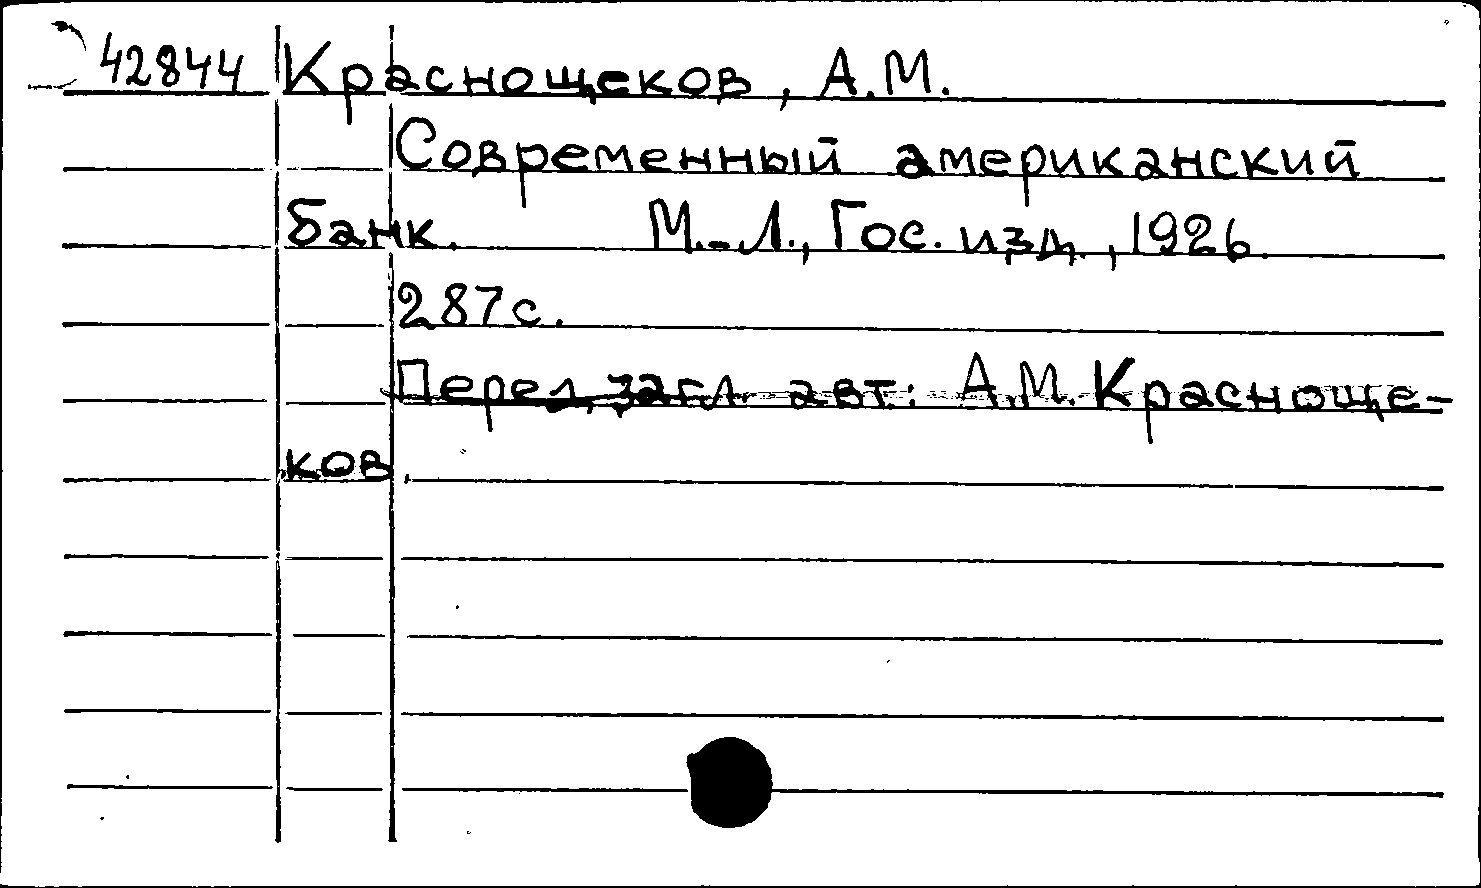 42844 Краснощеков, А.М.
Современный американский
банк. М.-Л., Гос. изд., 1926.
287с.
Перед загл. авт.: А.М. Краснოще-
ков.